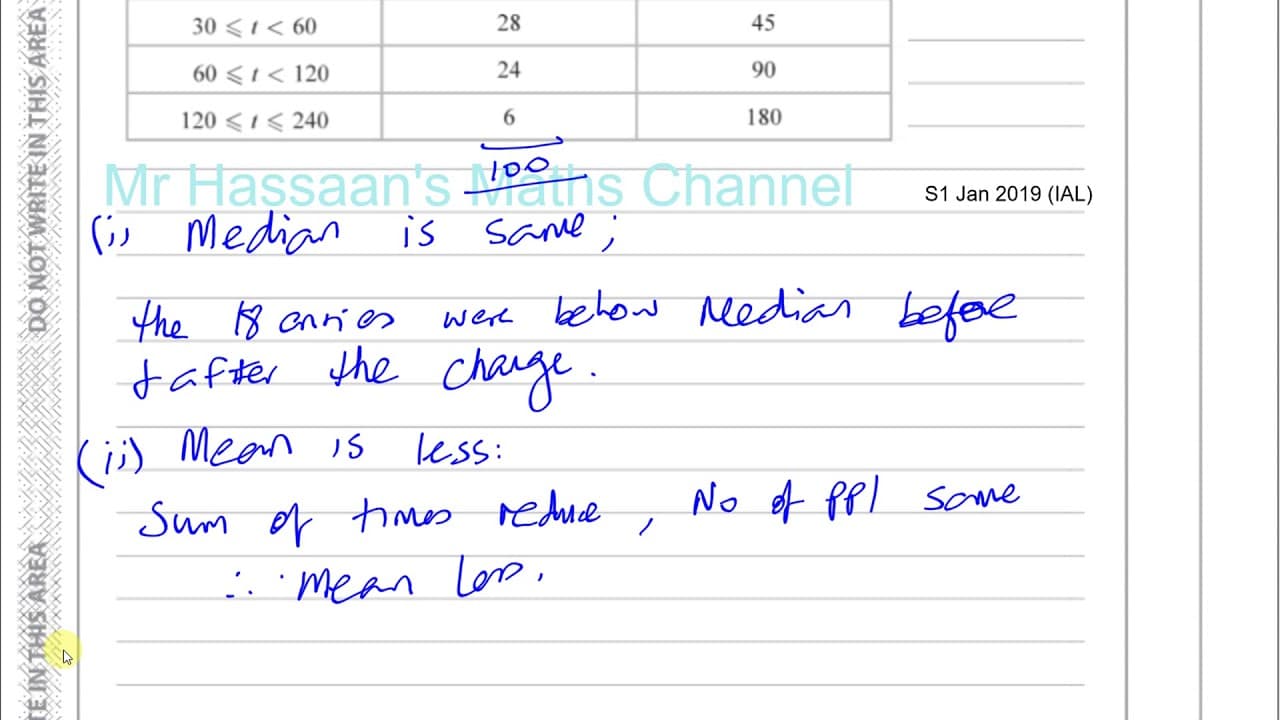 DO NOT WRITE IN THIS AREA
30 ⩽ t < 60 28 45
60 ⩽ t < 120 24 90
120 ⩽ t ⩽ 240 6 180
100
Mr Hassaan's Maths Channel
S1 Jan 2019 (IAL)
(i) Median is same;
the 18 entries were below Median before
& after the change.
(ii) Mean is less:
Sum of times reduce, No of ppl same
∴ mean less.
TE IN THIS AREA